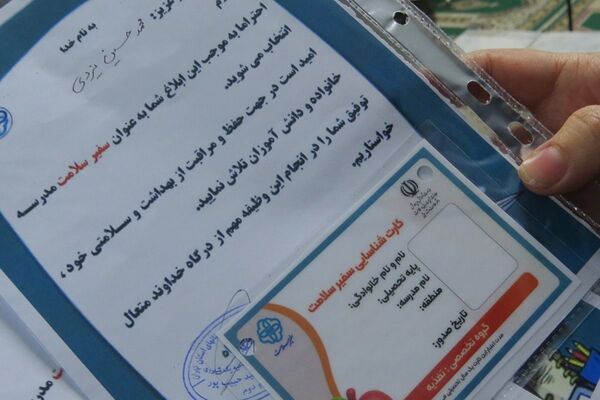 به نام خدا
عزیز: محمد حسین یزدی
احتراما به موجب این ابلاغ شما به عنوان سفیر سلامت مدرسه
انتخاب می شوید.
امید است در جهت حفظ و مراقبت از بهداشت و سلامتی خود ،
خانواده و دانش آموزان تلاش نمایید.
توفیق شما را در انجام این وظیفه مهم از درگاه خداوند متعال
خواستاریم.
کارت شناسایی سفیر سلامت
نام و نام خانوادگی:
پایه تحصیلی:
نام مدرسه:
منطقه:
تاریخ صدور:
گروه تخصصی : تغذیه